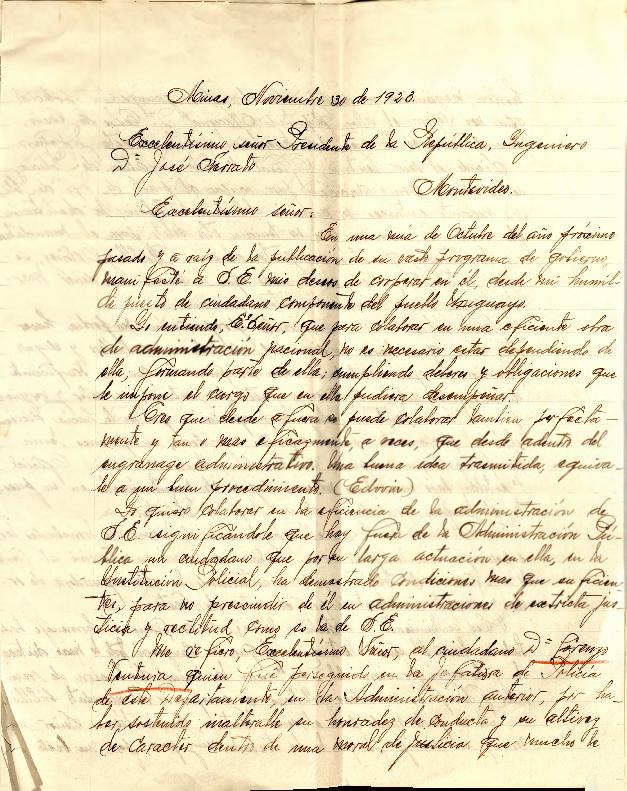 Minas, Noviembre 30 de 1923.
Excelentísimo señor Presidente de la República, Ingeniero
Dn José Serrato
Montevideo.
Excelentísimo señor:
En una mía de Octubre del año próximo
pasado y a raíz de la publicación de su vasto programa de gobierno,
manifesté a S.E. mis deseos de cooperar en él, desde mi humil-
de puesto de ciudadano componente del pueblo Uruguayo.
Yo entiendo, E. Señor, que para colaborar en una eficiente obra
de administración nacional, no es necesario estar dependiendo de
ella, formando parte de ella; cumpliendo deberes y obligaciones que
le impone el cargo que en ella pudiera desempeñar.
Creo que desde afuera se puede colaborar tambien perfecta-
mente y tan o mas eficazmente, a veces, que desde adentro del
engranage administrativo. Una buena idea trasmitida, equiva-
le a un buen procedimiento.
Yo quiero colaborar en la eficiencia de la administración de
S.E. significándole que hay fuera de la Administración Pú-
blica un ciudadano que por su larga actuación en ella, en la
Institución Policial, ha demostrado condiciones mas que suficien-
tes, para no prescindir de él en administraciones de estricta jus-
ticia y rectitud, como es la de S.E.
Me refiero Excelentísimo Señor, al ciudadano Dn Lorenzo
Ventura quien fué perseguido en la Jefatura de Policía
de este departamento, en la Administración anterior, por ha-
ber sostenido inalterable su honradez de conducta y su altivez
de caracter dentro de una moral de justicia que mucho le